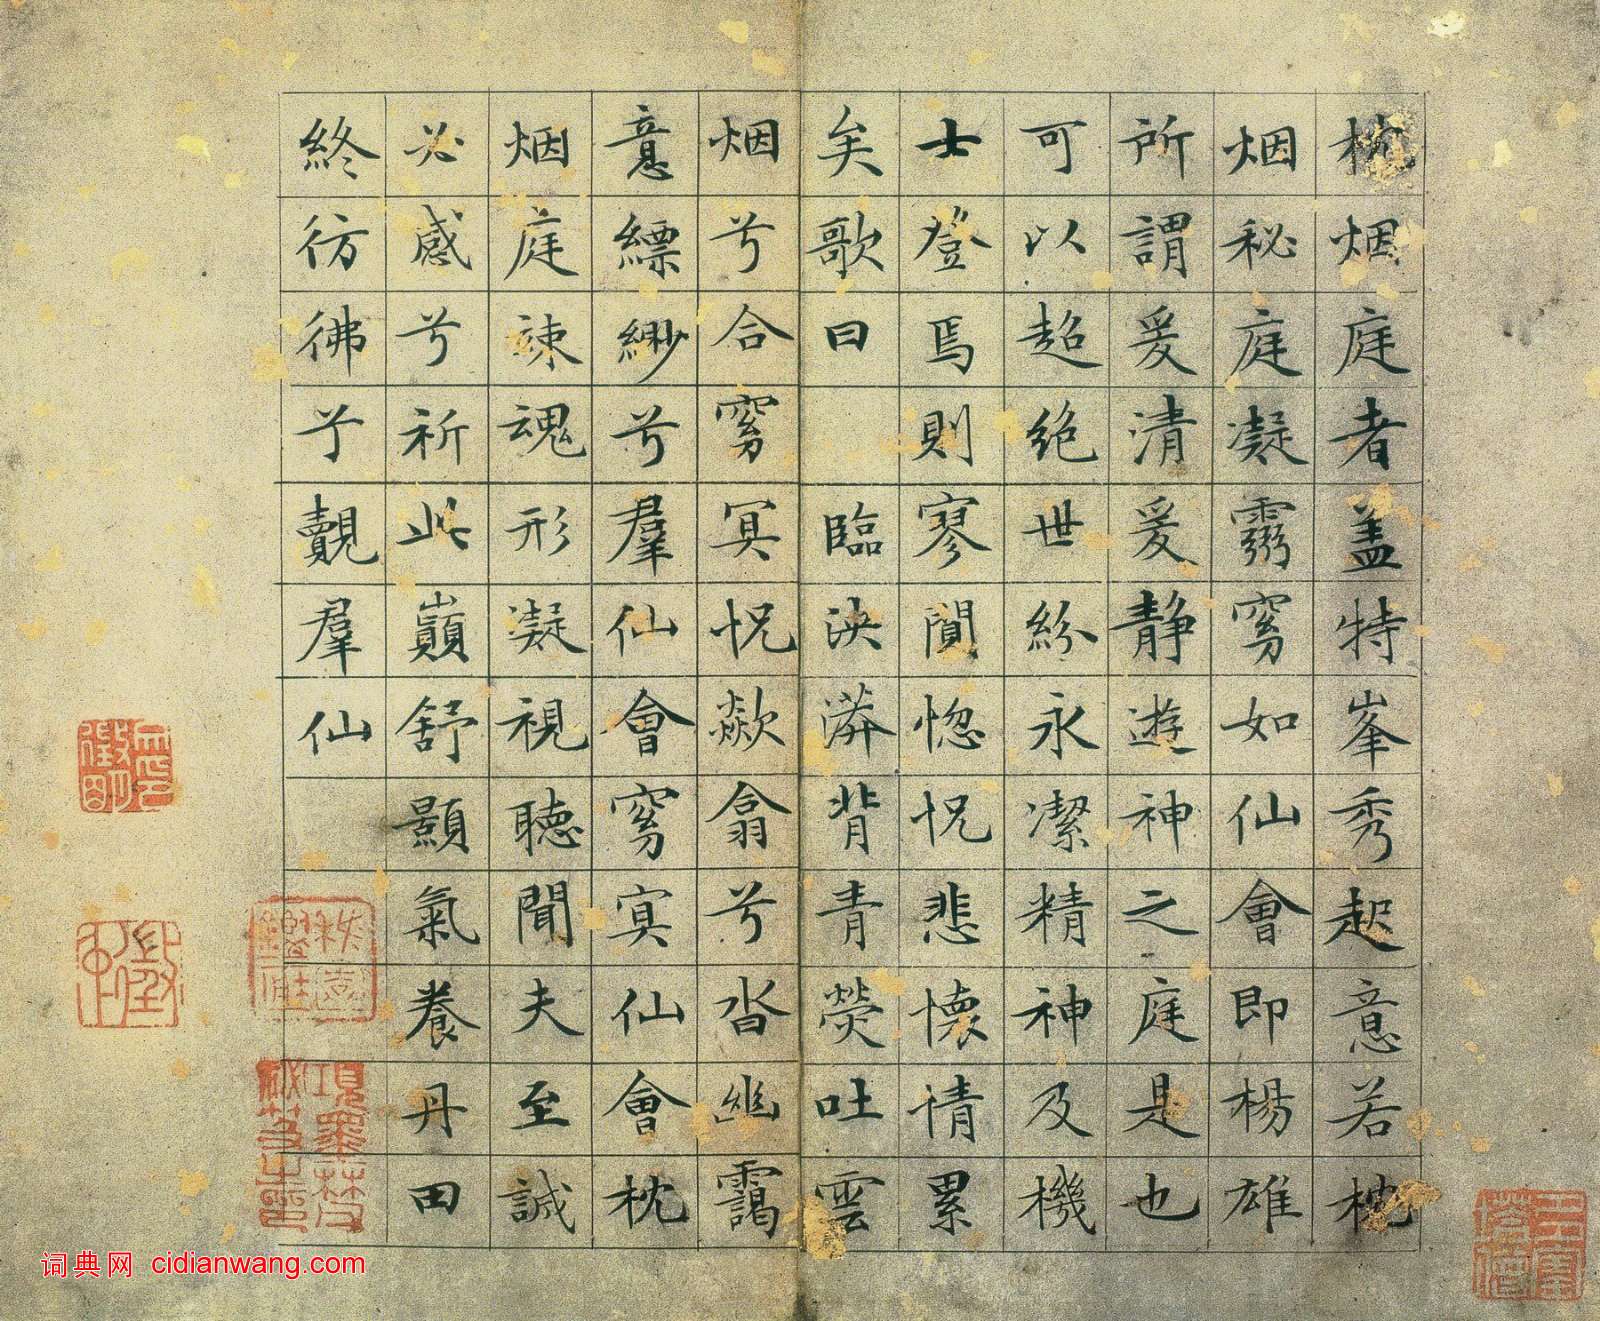 枕烟庭者盖特峯秀起意若枕
烟秘庭凝霛窈如仙會即楊雄
所謂爰清爰静遊神之庭是也
可以超絶世紛永潔精神及機
士登焉則寥閴惚怳悲懷情累
矣歌曰 臨泱漭背青熒吐雲
烟兮合窈冥怳欻翕兮沓幽靄
意縹緲兮羣仙會窈冥仙會枕
烟庭竦魂形凝視聴聞夫至誠
必感兮祈此巔舒顥氣養丹田
終彷彿兮覿羣仙
徵明
项墨林父秘笈之印
词典网 cidianwang.com